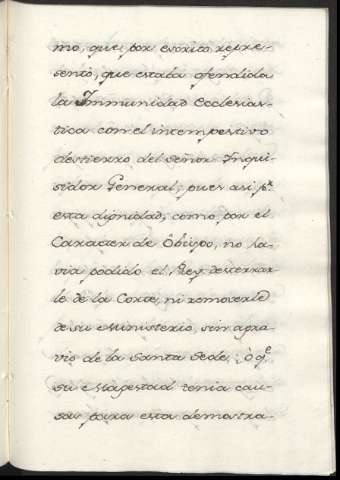 mo, que, por escrito, repre-
sentó, que estaba ofendida
la Immunidad Ecclesias-
tica con el intempestivo
destierro del Señor Inqui-
sidor General; pues asi p.r
esta dignidad, como por el
Caracter de Obispo, no ha-
via podido el Rey desterrar-
le de la Corte, ni removerle
de su Ministerio, sin agra-
vio de la Santa Sede; ò q.e
su Magestad tenia cau-
sas para esta demostra-